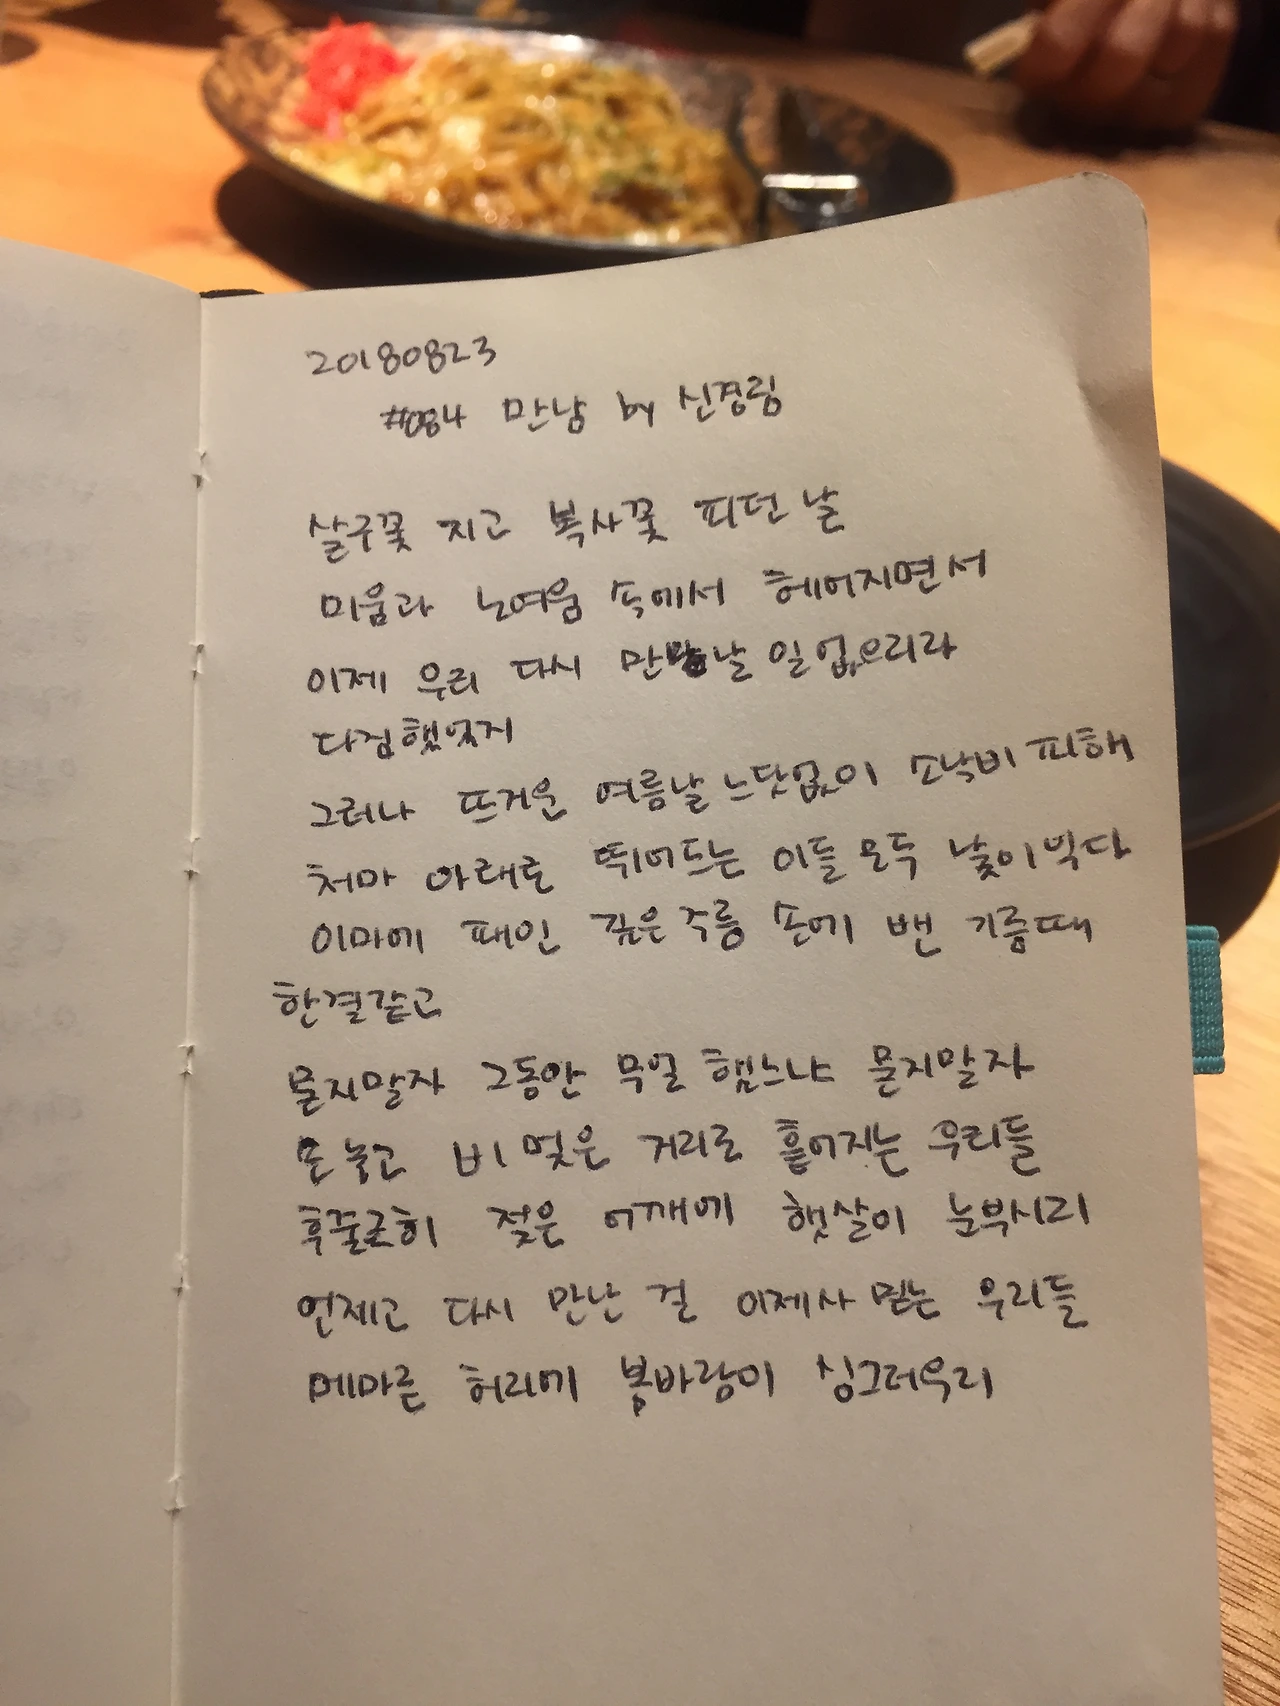 20180823
#084 만남 by 신경림
살구꽃 지고 복사꽃 피던 날
미움과 노여움 속에서 헤어지면서
이제 우리 다시 만날 일 없으리라
다짐했었지
그러나 뜨거운 여름날 느닷없이 소낙비 피해
처마 아래로 뛰어드는 이들 모두 낯이 익다
이마에 패인 깊은 주름 손에 밴 기름때
한결같고
묻지말자 그동안 무얼 했느냐 묻지말자
손 놓고 비 멎은 거리로 흩어지는 우리들
후줄근히 젖은 어깨에 햇살이 눈부시리
언제고 다시 만난 걸 이제사 믿는 우리들
메마른 허리에 봄바람이 싱그러우리